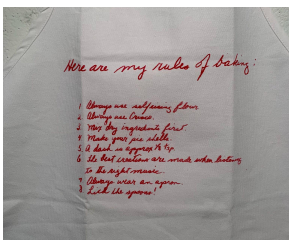 Here are my rules of baking:
1. Always use selfrising flour
2. Always use Crisco.
3. Mix dry ingredients first.
4 Make your pie shells
5. A dash is approx ⅛ tsp.
6 The best creations are made when listening
to the right music.
7 Always wear an apron
8 Lick the spoons!